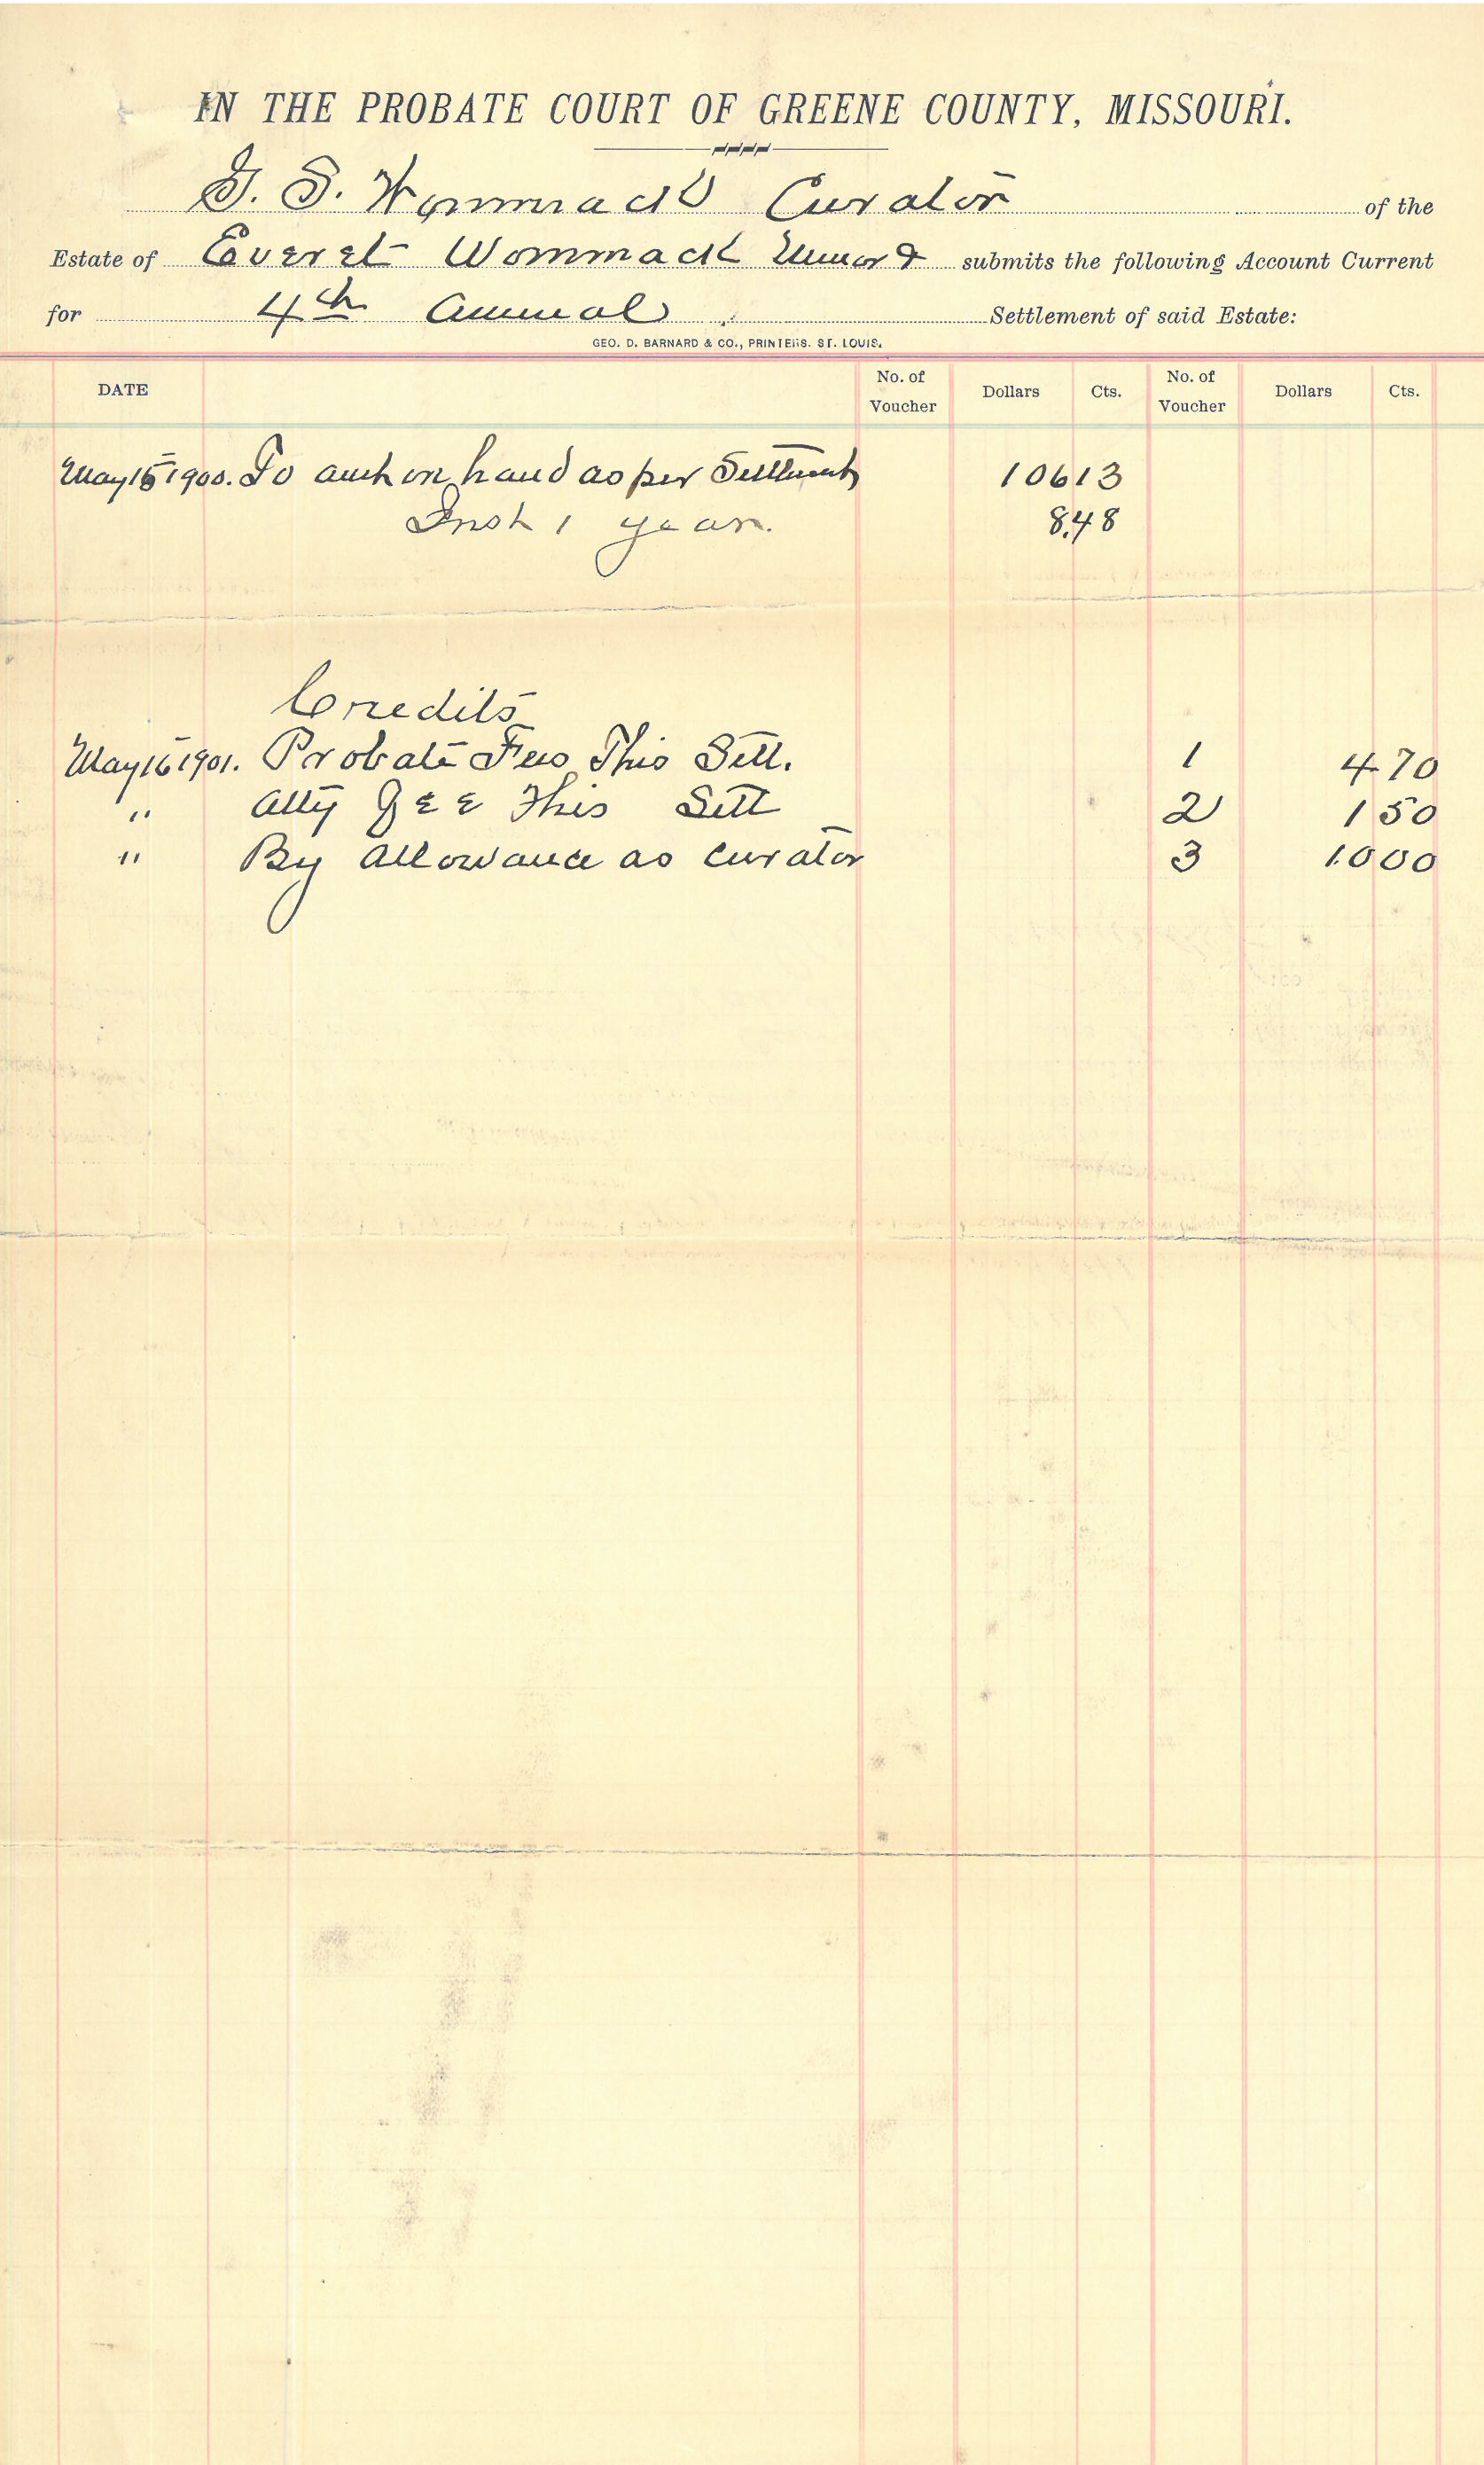 IN THE PROBATE COURT OF GREENE COUNTY, MISSOURI.
G. S. Wommack Curator of the
Estate of Everet Wommack Minor submits the following Account Current
for 4th Annual Settlement of said Estate:
GEO. D. BARNARD & CO., PRINTERS. ST. LOUIS.
DATE No. of Voucher Dollars Cts. No. of Voucher Dollars Cts.
May 15 1900. To amt on hand as per Settlment 106 13
Inst 1 year. 8.48
Credits
May 16 1901. Probate Fees This Sett. 1 4 70
" Atty Fee This Sett 2 1 50
" By Allowance as Curator 3 10 00